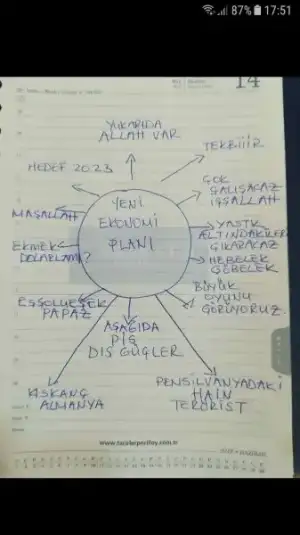 87% 17:51
14
YUKARIDA
ALLAH VAR
TEKBİİİR
HEDEF 2023
ÇOK
ÇALIŞACAZ
İŞŞALLAH
YENİ
EKONOMİ
PLANI
MAŞALLAH
YASTIK
ALTINDAKİLERİ
ÇIKARACAZ
EKMEK
DOLARLAMI?
HEBELEK
GÜBELEK
BÜYÜK
OYUNU
GÖRÜYORUZ
EŞŞOLUEŞEK
PAPAZ
AŞAĞIDA
PİS
DIŞ GÜÇLER
KISKANÇ
ALMANYA
PENSİLVANYADAKİ
HAİN
TERÖRİST
www.tacirlerportfoy.com.tr